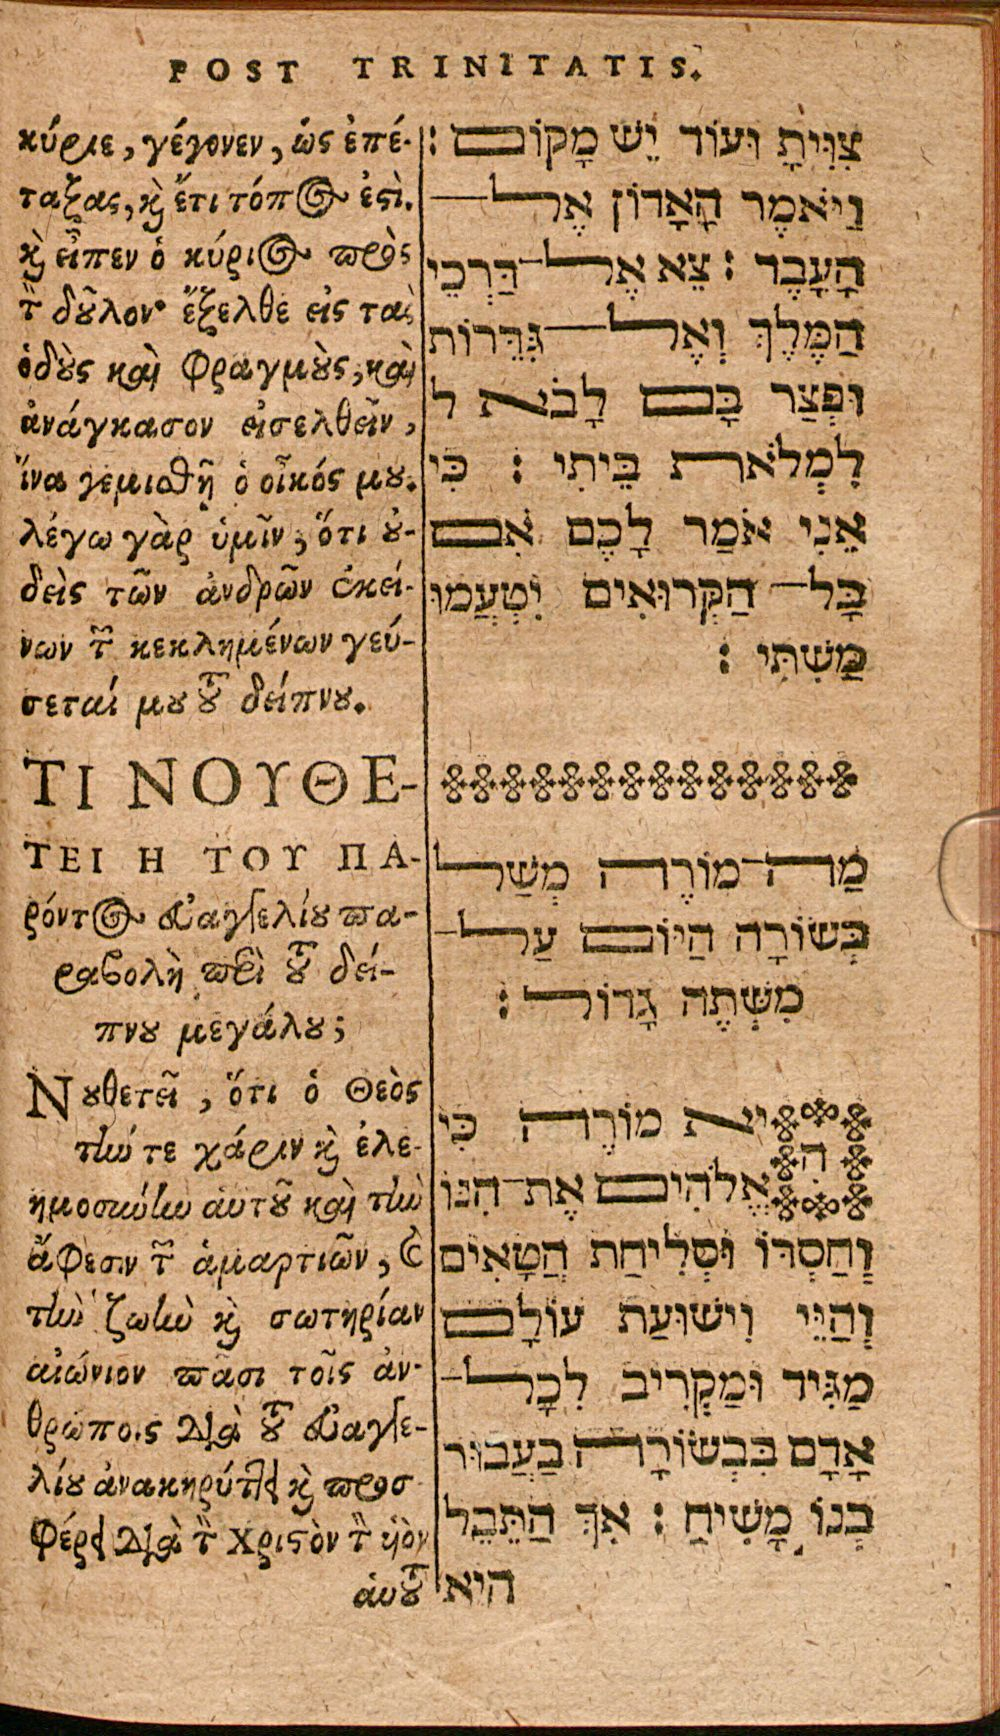 POST TRINITATIS.
κύριε, γέγονεν, ὡς ἐπέ-
ταξας, κ̀ ἔτι τόπος ἐςί.
κ̀ εἶπεν ὁ κύριος πρὸς
τ̃ δȣ̃λον· ἔξελθε εἰς τὰς
ὁδȣ̀ς καὶ φραγμȣ̀ς, καὶ
ἀνάγκασον εἰσελθεῖν,
ἵνα γεμισθῇ ὁ οἶκός μȣ.
λέγω γὰρ ὑμῖν, ὅτι ȣ̓-
δεὶς τῶν ἀνδρῶν ἐκεί-
νων τ̃ κεκλημένων γεύ-
σεταί μȣ τȣ̃ δείπνȣ.
ΤΙ ΝΟΥΘΕ-
ΤΕΙ Η ΤΟΥ ΠΑ-
ρόντος εὐαγγελίȣ πα-
ραβολὴ περὶ τȣ̃ δεί-
πνȣ μεγάλȣ;
Νȣθετεῖ, ὅτι ὁ Θεὸς
τήν τε χάριν κ̀ ἐλε-
ημοσύνην αὐτȣ̃ καὶ τὴν
ἄφεσιν τ̃ ἁμαρτιῶν, καὶ
τὴν ζωὴν κ̀ σωτηρίαν
αἰώνιον πᾶσι τοῖς ἀν-
θρώποις διὰ τȣ̃ εὐαγγε-
λίȣ ἀνακηρύττει κ̀ προσ
φέρει διὰ τ̃ Χριςὸν τ̃ υἱὸν
ἁυτȣ̃
צִוִּיתָ וְעוֹד יֵשׁ מָקוֹם :
וַיֹּאמֶר הָאָדוֹן אֶל
הָעָבֶד : צֵא אֶל־דַּרְכֵי
הַמֶּלֶךְ וְאֶל־גְּדֵרוֹת
וּפְצַר בָּם לָבֹא ל
לְמְלֹאת בֵּיתִי : כִּי
אֲנִי אֹמַר לָכֶם אִם
כָּל־ הַקְּרוּאִים יִטְעֲמוּ
מַשְׁתִּי :
מַה־מוֹרֶה מְשַׁל
בְּשׂוֹרָה הַיּוֹם עַל־
מִשְׁתֶּה גָדוֹל :
הִיא מוֹרֶה כִּי
אֱלֹהִים אֶת־חִנּוֹ
וְחַסְדּוֹ וּסְלִיחַת חֲטָאִים
וְחַיֵּי וִישׁוּעַת עוֹלָם
מַגִּיד וּמַקְרִיב לְכָל־
אָדָם בִּבְשׂוֹרָה בַּעֲבוּר
בְּנוֹ מָשִׁיחַ : אַךְ הַתֵּבֵל
הִיא